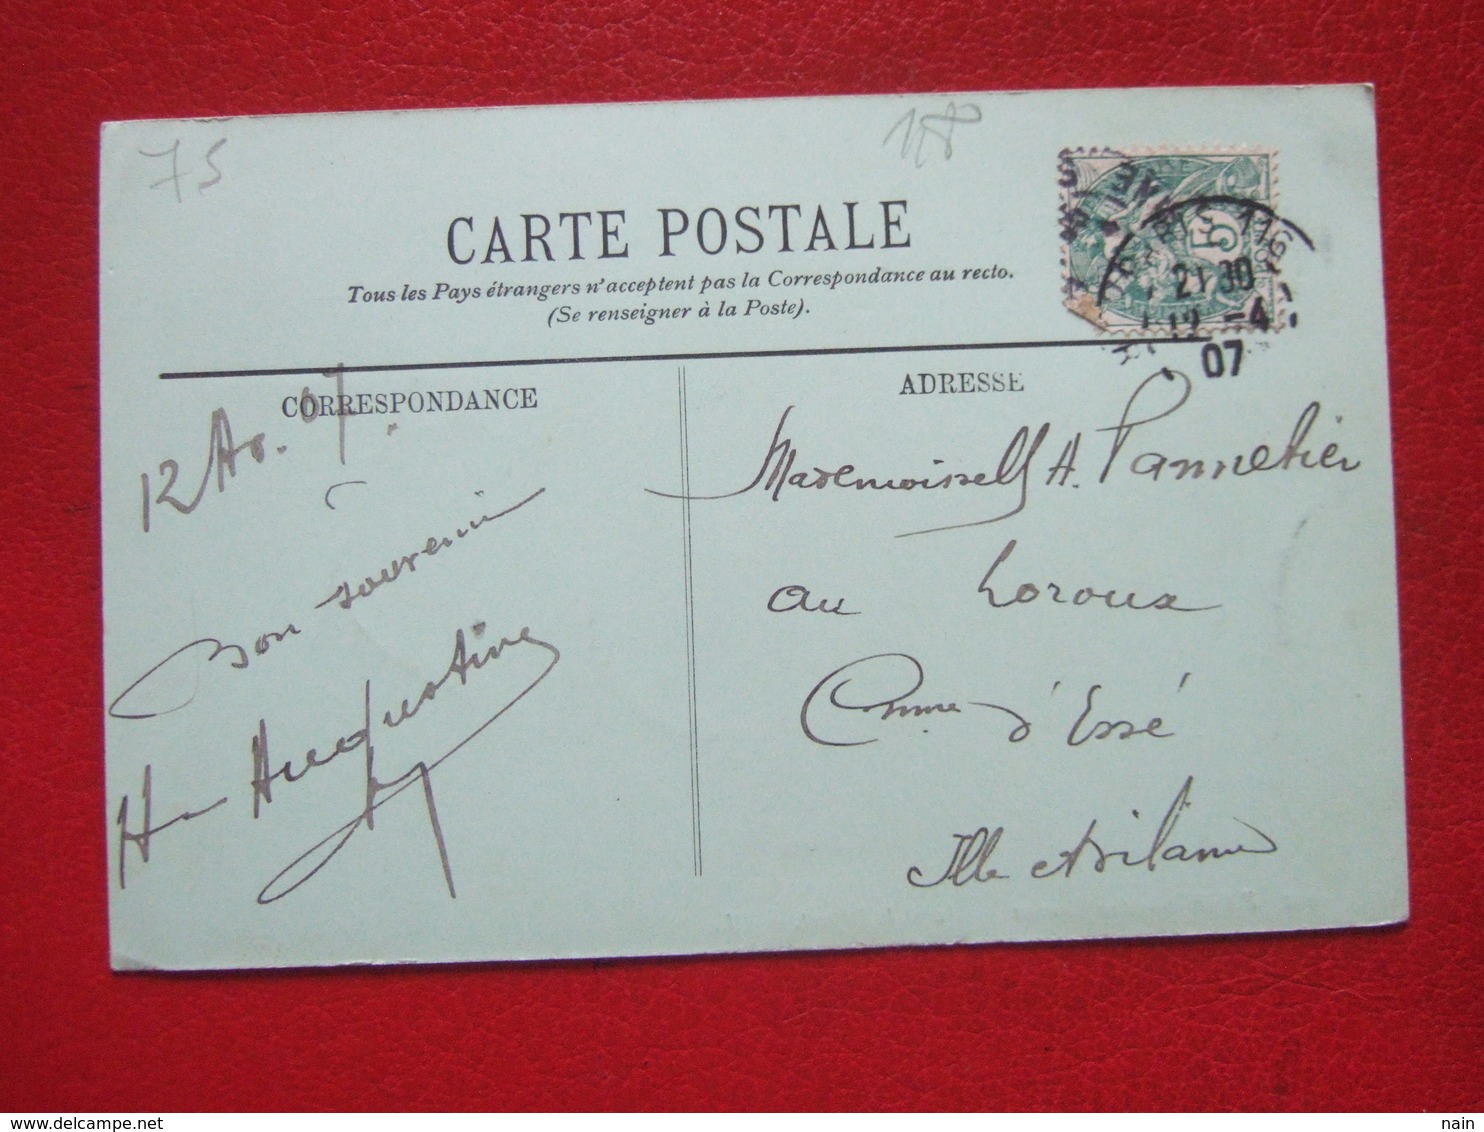 75
CARTE POSTALE
Tous les Pays étrangers n'acceptent pas la Correspondance au recto.
(Se renseigner à la Poste).
5
PARIS 116
21 30
12 -4
07
CORRESPONDANCE
12 Av. 07.
Bon souvenir
Augustine
ADRESSE
Mademoiselle A. Pannetier
au Loroux
Cmne d'Essé
Ille et Vilaine
nain